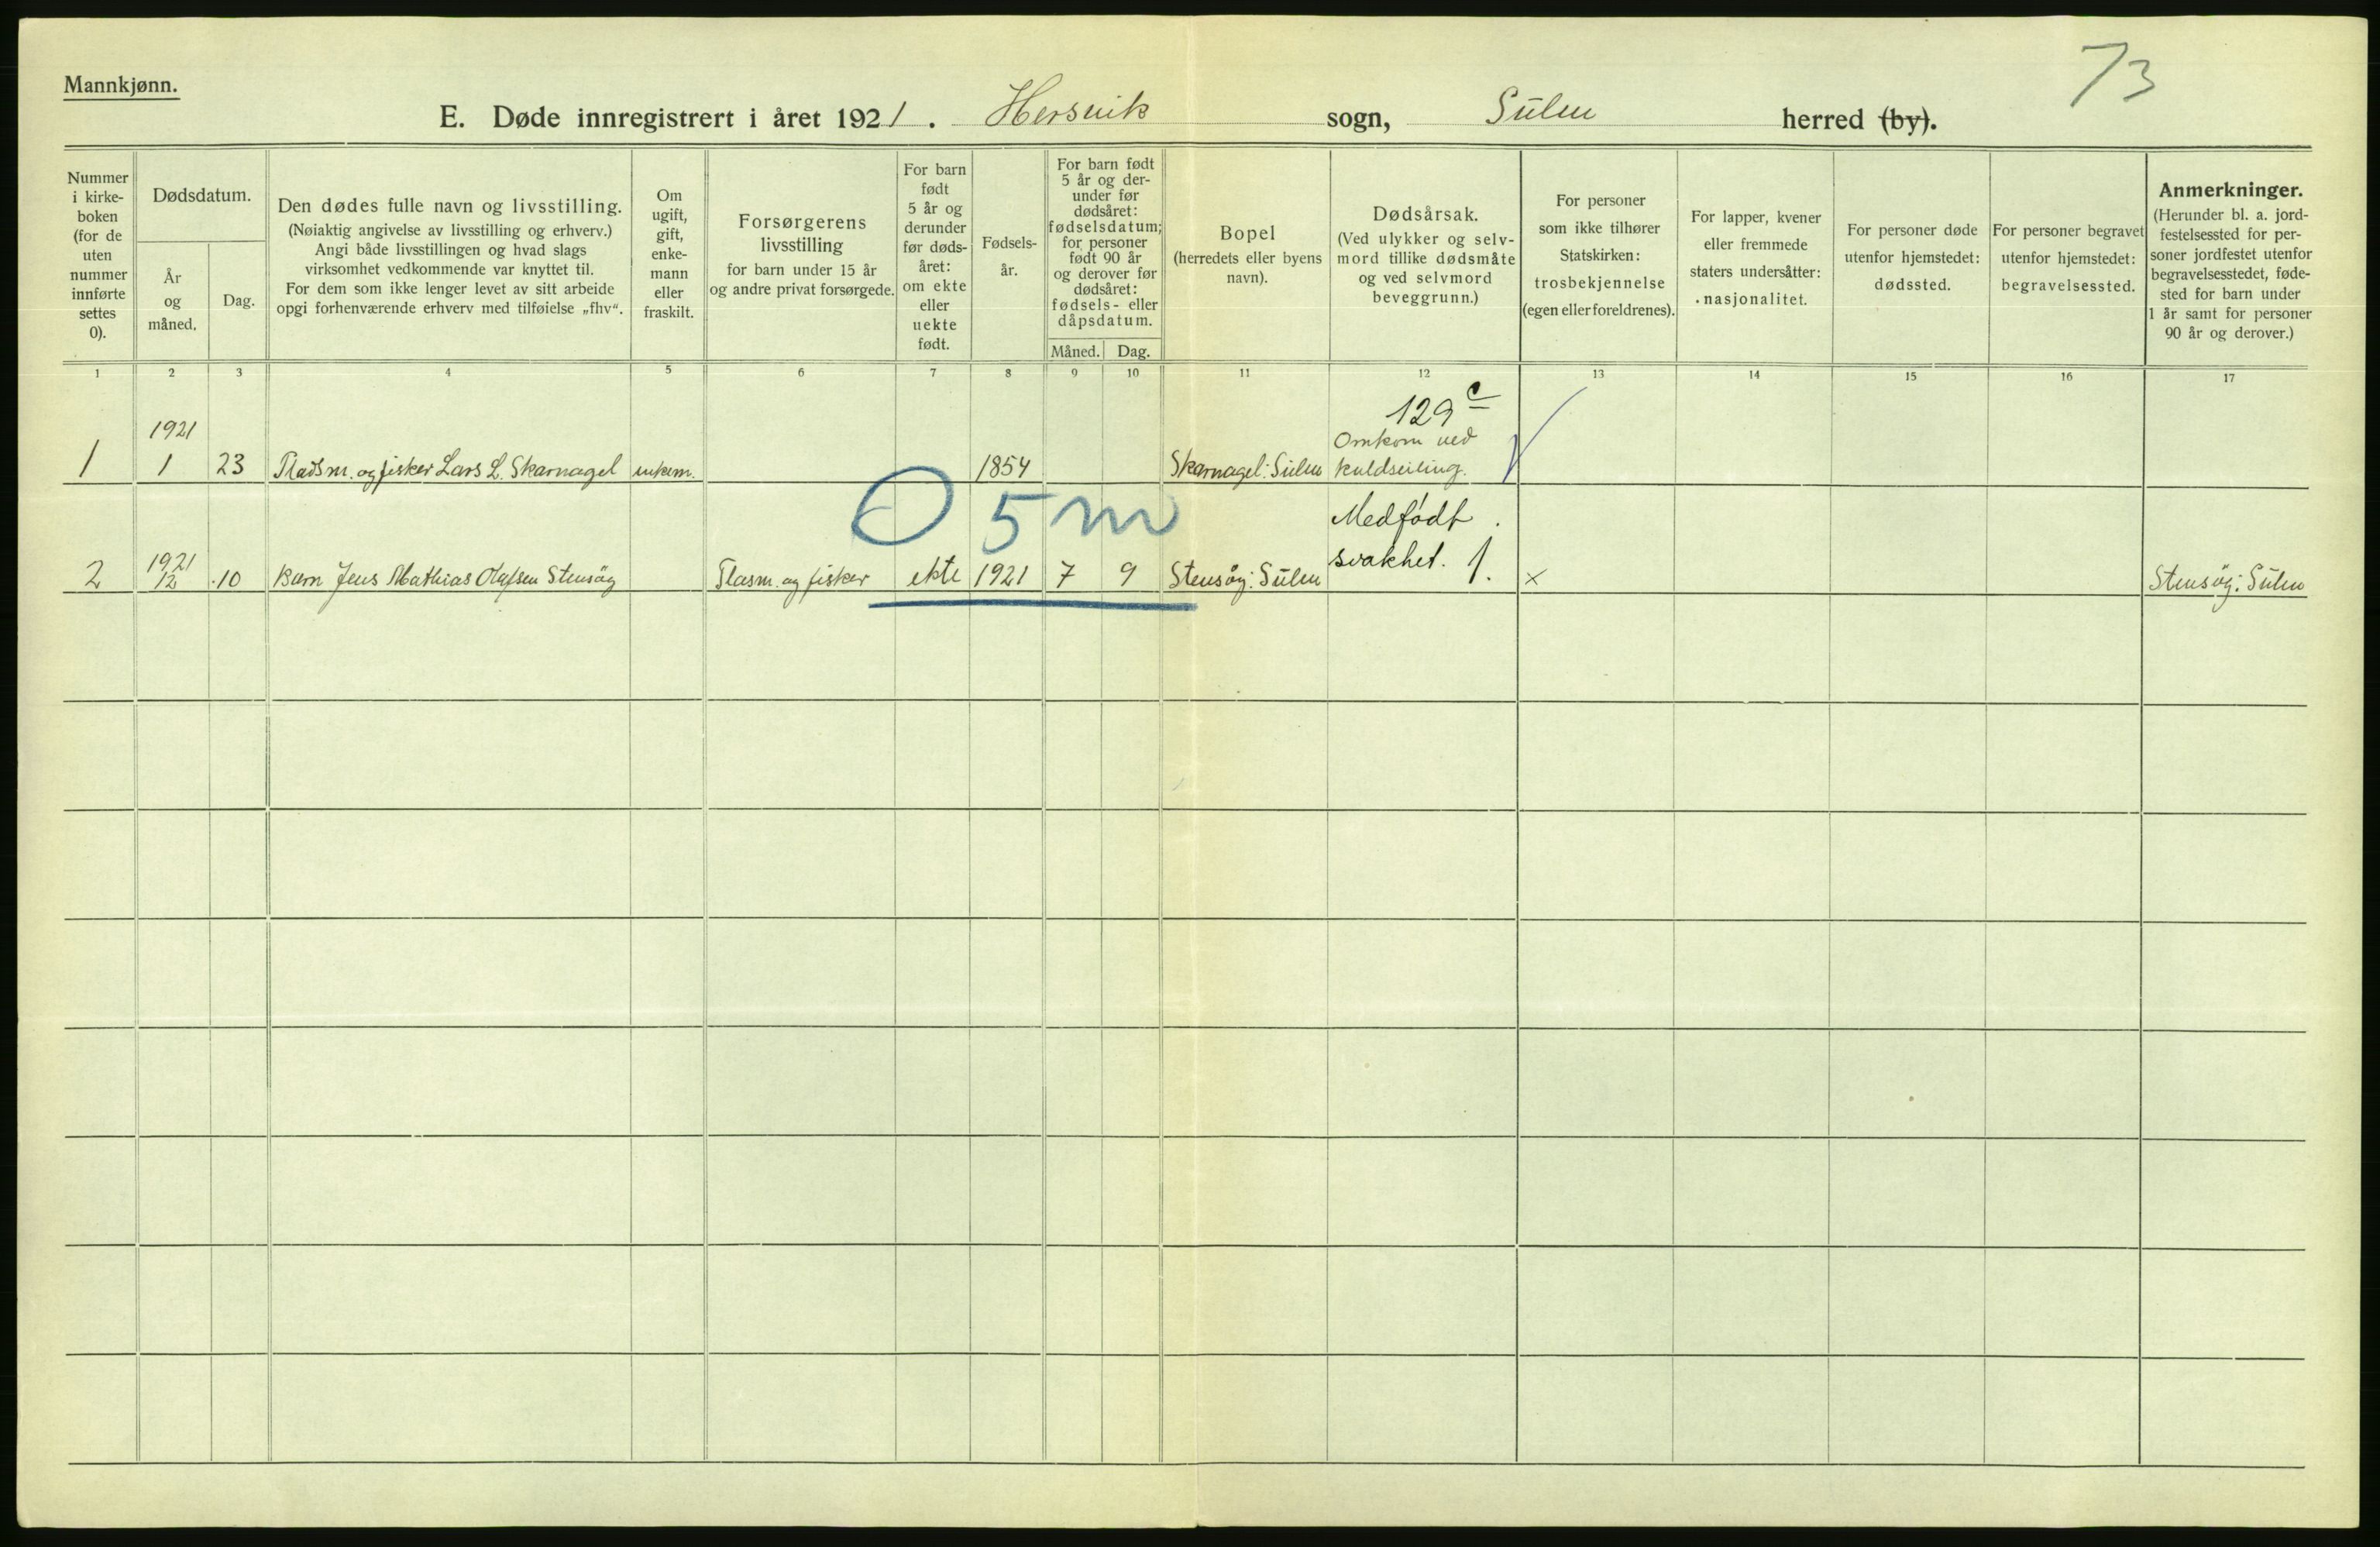 73
Mannkjønn.
E. Døde innregistrert i året 1921. Hersvik sogn, Sulen herred (by).
Nummer
i kirke-
boken
(for de
uten
nummer
innførte
settes
0).
Dødsdatum.
År
og
måned.
Dag.
Den dødes fulle navn og livsstilling.
(Nøiaktig angivelse av livsstilling og erhverv.)
Angi både livsstillingen og hvad slags
virksomhet vedkommende var knyttet til.
For dem som ikke lenger levet av sitt arbeide
opgi forhenværende erhverv med tilføielse „fhv“.
Om
ugift,
gift,
enke-
mann
eller
fraskilt.
Forsørgerens
livsstilling
for barn under 15 år
og andre privat forsørgede.
For barn
født
5 år og
derunder
før døds-
året:
om ekte
eller
uekte
født.
Fødsels-
år.
For barn født
5 år og der-
under før
dødsåret:
fødselsdatum;
for personer
født 90 år
og derover før
dødsåret:
fødsels- eller
dåpsdatum.
Måned. Dag.
Bopel
(herredets eller byens
navn).
Dødsårsak.
(Ved ulykker og selv-
mord tillike dødsmåte
og ved selvmord
beveggrunn.)
For personer
som ikke tilhører
Statskirken:
trosbekjennelse
(egen eller foreldrenes).
For lapper, kvener
eller fremmede
staters undersåtter:
nasjonalitet.
For personer døde
utenfor hjemstedet:
dødssted.
For personer begravet
utenfor hjemstedet:
begravelsessted.
Anmerkninger.
(Herunder bl. a. jord-
festelsessted for per-
soner jordfestet utenfor
begravelsesstedet, føde-
sted for barn under
1 år samt for personer
90 år og derover.)
1 2 3 4 5 6 7 8 9 10 11 12 13 14 15 16 17
129 c
1921
Omkom ved
1 1 23 Pladsm. og fisker Lars L. Skarnagel enkem. 1854 Skarnagel: Sulen kuldseiling.
0 5 m
Medfødt
1921
svakhet. 1.
2 12 10 Barn Jens Mathias Olafsen Stensøy Plasm. og fisker ekte 1921 7 9 Stensøy: Sulen x Stensøy: Sulen